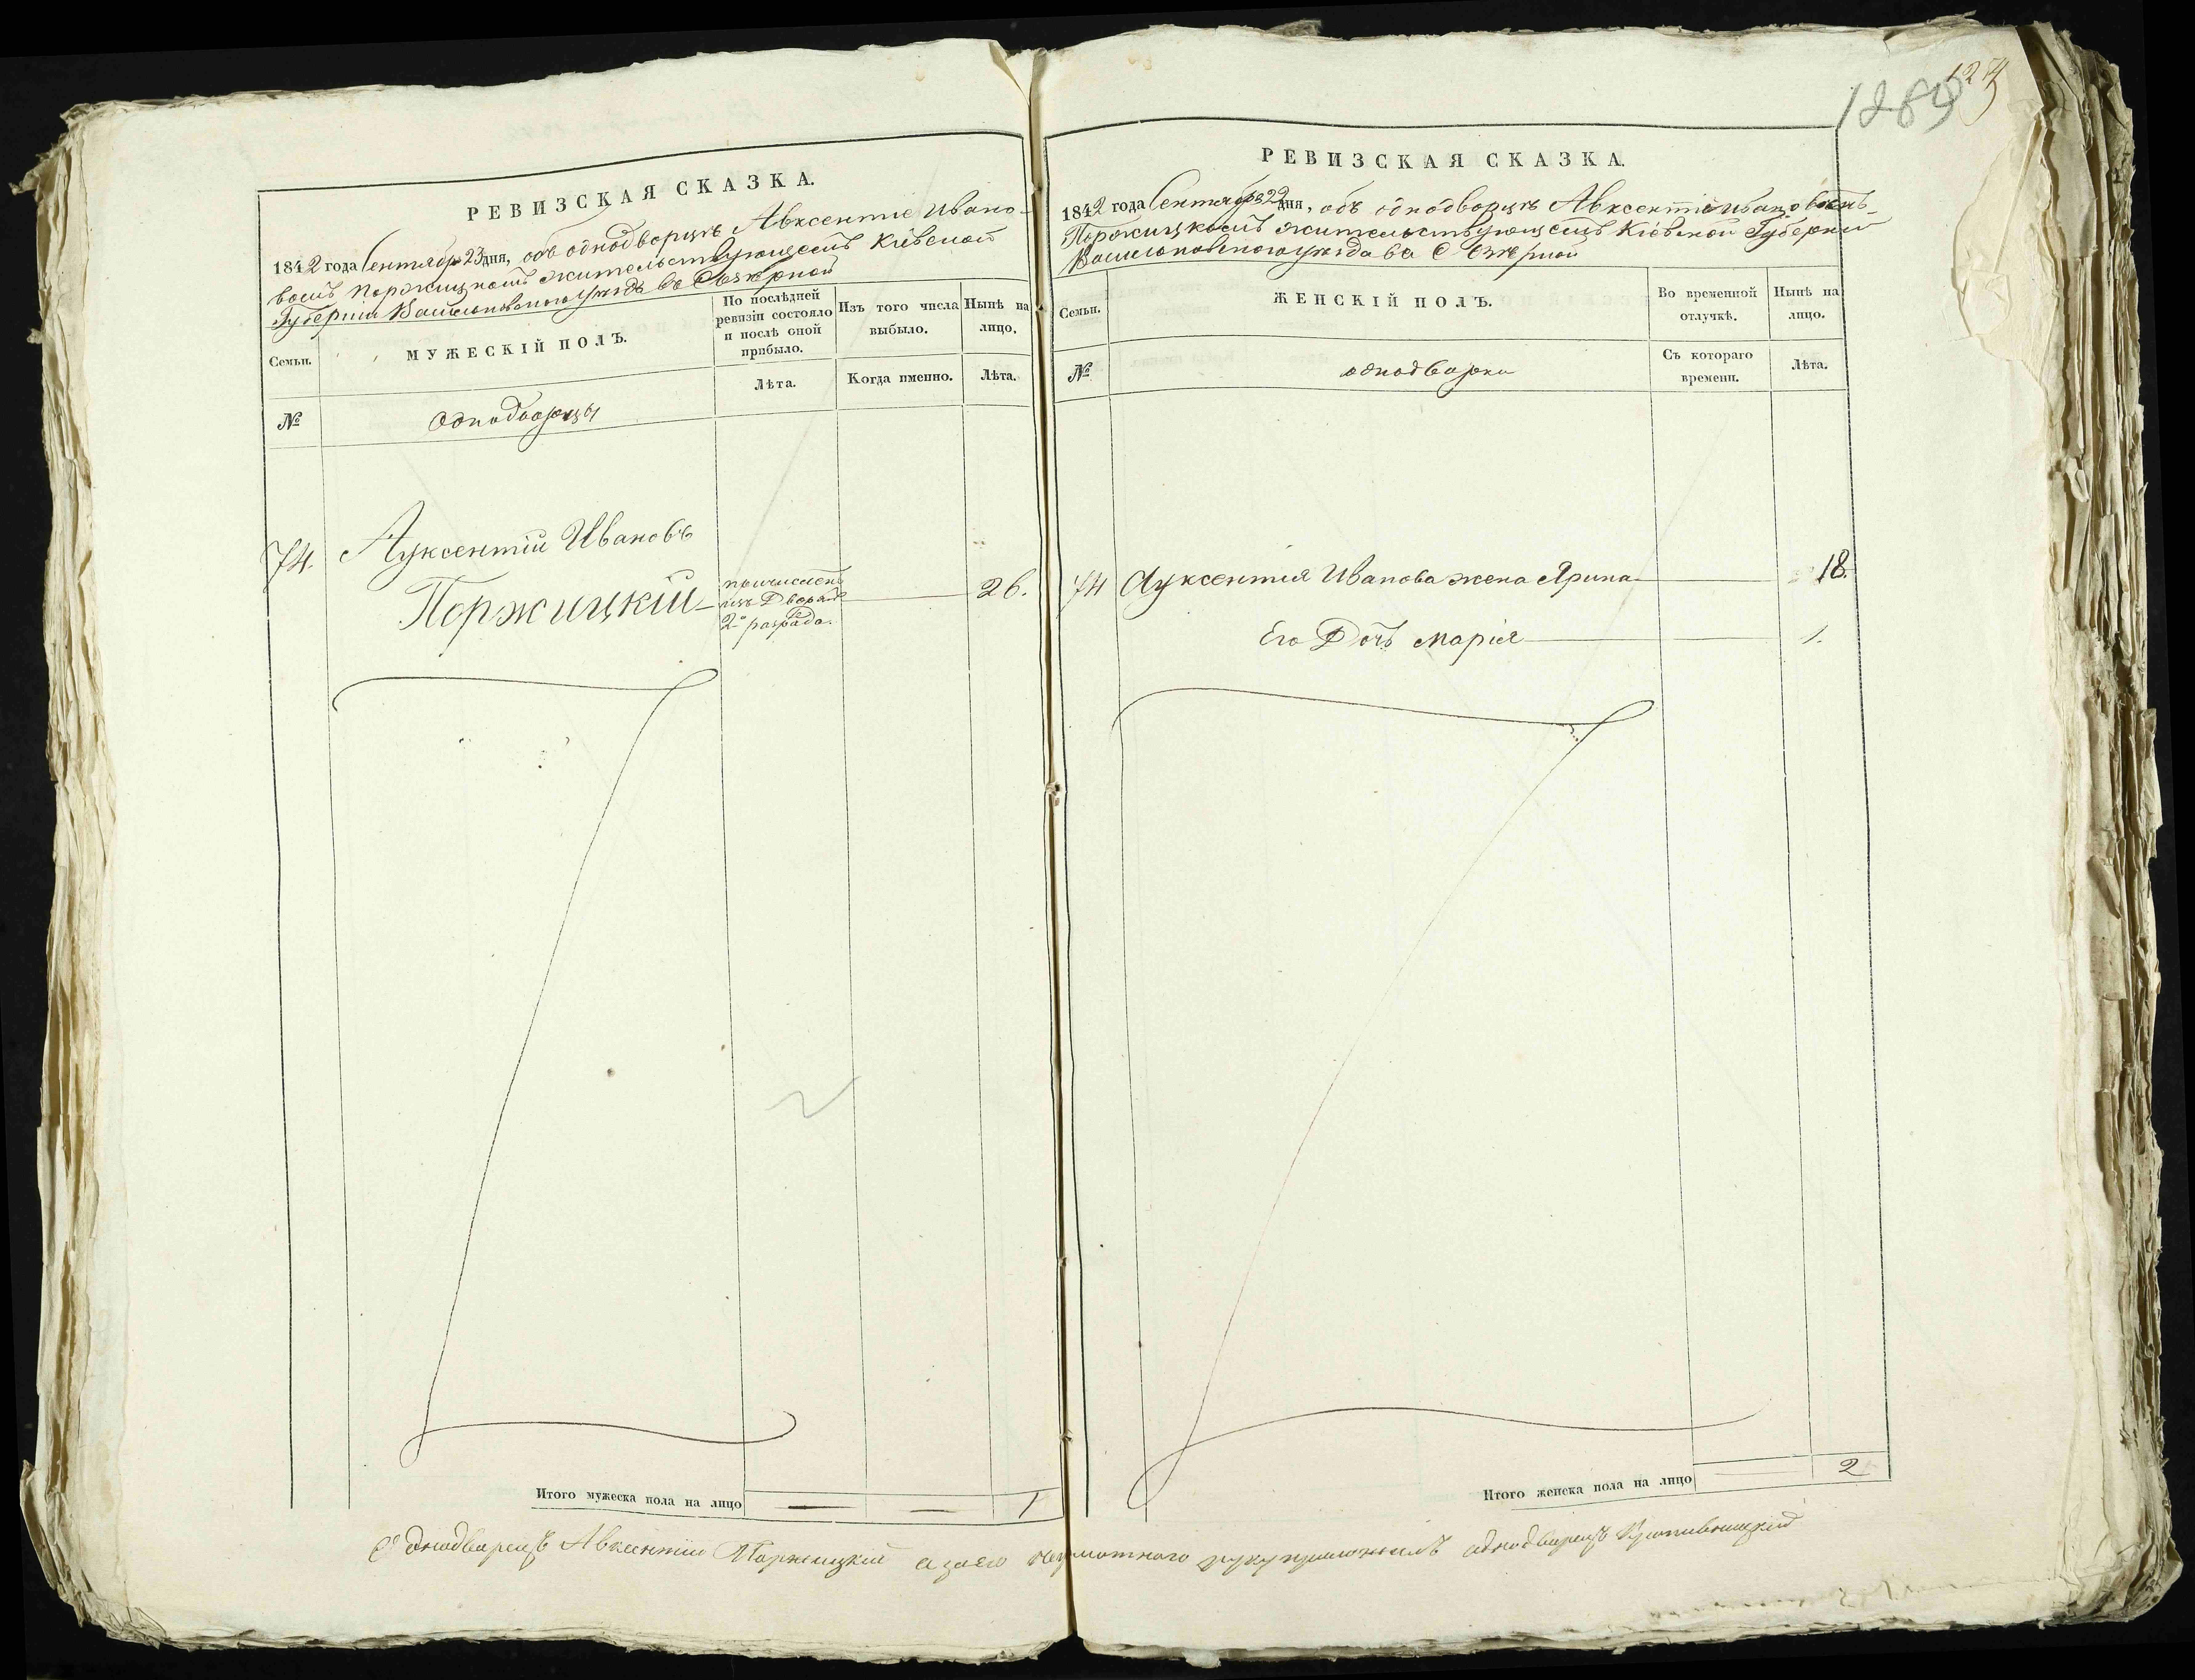 1869
127
РЕВИЗСКАЯ СКАЗКА.
1842 года Сентября 23 дня, объ однодворцѣ Авксентіе Ивано-
вомъ Поржицкомъ жительствующемъ Кіевской
Губерніи Васильковского уѣзда въ С Езерной
Семьи.
МУЖЕСКІЙ ПОЛЪ.
По послѣдней ревизіи состояло и послѣ оной прибыло.
Изъ того числа выбыло.
Нынѣ на лицо.
№
Однодворцы
Лѣта.
Когда именно.
Лѣта.
74. Ауксентій Ивановъ
Поржицкій
причисленъ
изъ Дворянъ
2го разряда.
26.
Итого мужеска пола на лицо — — 1
РЕВИЗСКАЯ СКАЗКА.
1842 года Сентября 22 дня, объ однодворцѣ Авксентіе Ивановомъ
Поржицкомъ жительствующемъ Кіевской Губерніи
Васильковского уѣзда въ С Езерной
Семьи.
ЖЕНСКІЙ ПОЛЪ.
Во временной отлучкѣ.
Нынѣ на лицо.
№
однодворки
Съ котораго времени.
Лѣта.
74 Ауксентія Иванова жена Ярина 18.
Его Дочь Марія 1.
Итого женска пола на лицо — 2
Однодворецъ Авксентій Поржицкій а за его неграмотного руку приложилъ однодворецъ